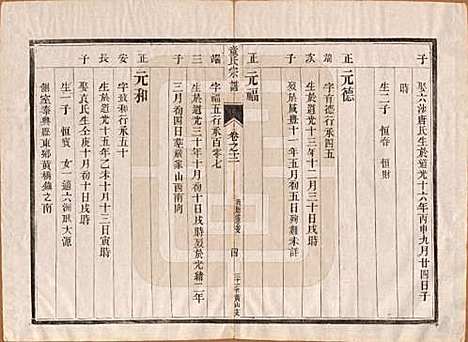 子
娶六油唐氏生於道光十六年丙申九月廿四日子
時
生二子 恒春 恒財
正 元德
字首德行承四五
次 生於道光十三年十二月十三日戌時
子 歿於咸豐十一年五月初五日殉難未詳
正 元福
端 字福五行承百零七
三 生於道光二十三年十月初十日戌時歿於光緒二年
子 三月初四日葬嚴家山酉南向
章氏宗譜
卷之十三
四
正 元和
安 字致和行承五十
長 生於道光十五年乙未十月十三日寅時
子 娶袁氏生壬庚十月初十日戌時
生一子 恒實 女一適六洲耿大源
側室泰興縣東鄉黃橋鎮之南